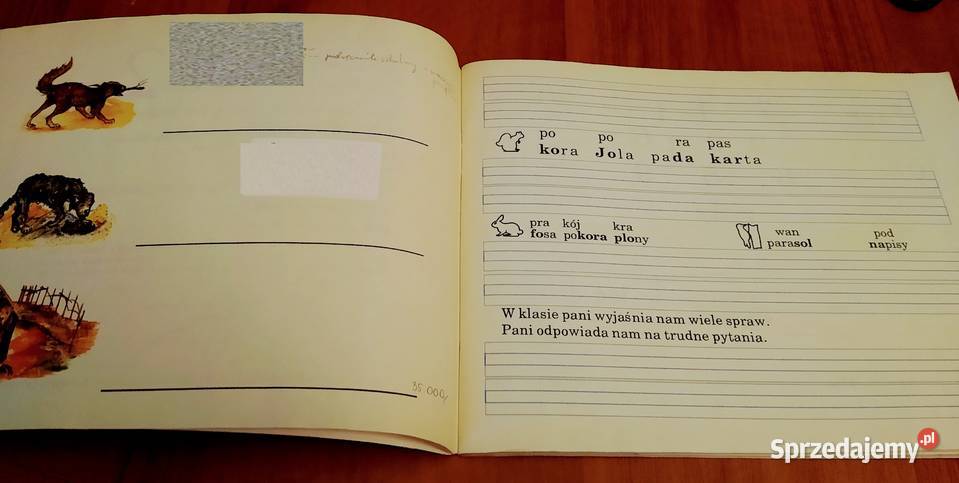 35.000,-
po po ra pas
kora Jola pada karta
pra kój kra
fosa pokora plony
wan pod
parasol napisy
W klasie pani wyjaśnia nam wiele spraw.
Pani odpowiada nam na trudne pytania.
Sprzedajemy.pl